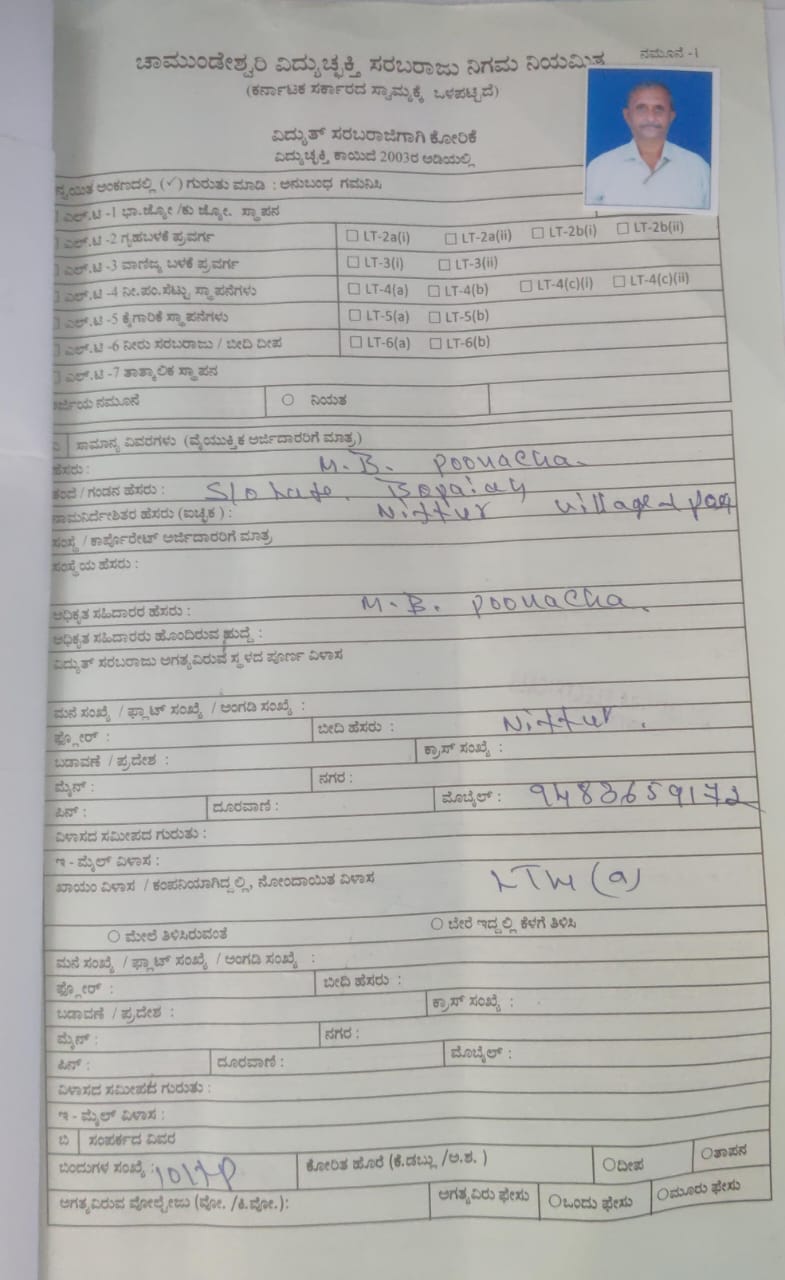 ನಮೂನೆ -1
ಚಾಮುಂಡೇಶ್ವರಿ ವಿದ್ಯುಚ್ಛಕ್ತಿ ಸರಬರಾಜು ನಿಗಮ ನಿಯಮಿತ
(ಕರ್ನಾಟಕ ಸರ್ಕಾರದ ಸ್ವಾಮ್ಯಕ್ಕೆ ಒಳಪಟ್ಟಿದೆ)
ವಿದ್ಯುತ್ ಸರಬರಾಜಿಗಾಗಿ ಕೋರಿಕೆ
ವಿದ್ಯುಚ್ಛಕ್ತಿ ಕಾಯಿದೆ 2003ರ ಅಡಿಯಲ್ಲಿ
ಅಂಕಣದಲ್ಲಿ (✓) ಗುರುತು ಮಾಡಿ : ಅನುಬಂಧ ಗಮನಿಸಿ
ಎಲ್.ಟಿ -1 ಭಾ.ಜ್ಯೋ /ಕು ಜ್ಯೋ. ಸ್ಥಾಪನ
ಎಲ್.ಟಿ -2 ಗೃಹಬಳಕೆ ಪ್ರವರ್ಗ ☐ LT-2a(i) ☐ LT-2a(ii) ☐ LT-2b(i) ☐ LT-2b(ii)
ಎಲ್.ಟಿ -3 ವಾಣಿಜ್ಯ ಬಳಕೆ ಪ್ರವರ್ಗ ☐ LT-3(i) ☐ LT-3(ii)
ಎಲ್.ಟಿ -4 ನೀ.ಪಂ.ಸೆಟ್ಟು ಸ್ಥಾಪನೆಗಳು ☐ LT-4(a) ☐ LT-4(b) ☐ LT-4(c)(i) ☐ LT-4(c)(ii)
ಎಲ್.ಟಿ -5 ಕೈಗಾರಿಕೆ ಸ್ಥಾಪನೆಗಳು ☐ LT-5(a) ☐ LT-5(b)
ಎಲ್.ಟಿ -6 ನೀರು ಸರಬರಾಜು / ಬೀದಿ ದೀಪ ☐ LT-6(a) ☐ LT-6(b)
ಎಲ್.ಟಿ -7 ತಾತ್ಕಾಲಿಕ ಸ್ಥಾಪನ
ನಮೂನೆ ○ ನಿಯತ
ಸಾಮಾನ್ಯ ವಿವರಗಳು (ವೈಯುಕ್ತಿಕ ಅರ್ಜಿದಾರರಿಗೆ ಮಾತ್ರ)
ಹೆಸರು : M. B. Poonacha.
ತಂದೆ / ಗಂಡನ ಹೆಸರು : S/o Late. Bopaiah
ನಾಮನಿರ್ದೇಶಿತರ ಹೆಸರು (ಐಚ್ಛಿಕ) : Nittur village
ಸಂಸ್ಥೆ / ಕಾರ್ಪೊರೇಟ್ ಅರ್ಜಿದಾರರಿಗೆ ಮಾತ್ರ
ಸಂಸ್ಥೆಯ ಹೆಸರು :
ಅಧಿಕೃತ ಸಹಿದಾರರ ಹೆಸರು : M. B. Poonacha.
ಅಧಿಕೃತ ಸಹಿದಾರರು ಹೊಂದಿರುವ ಹುದ್ದೆ :
ವಿದ್ಯುತ್ ಸರಬರಾಜು ಅಗತ್ಯವಿರುವ ಸ್ಥಳದ ಪೂರ್ಣ ವಿಳಾಸ
ಮನೆ ಸಂಖ್ಯೆ / ಫ್ಲಾಟ್ ಸಂಖ್ಯೆ / ಅಂಗಡಿ ಸಂಖ್ಯೆ :
ಫ್ಲೋರ್ : ಬೀದಿ ಹೆಸರು : Nittur.
ಬಡಾವಣೆ / ಪ್ರದೇಶ : ಕ್ರಾಸ್ ಸಂಖ್ಯೆ :
ಮೈನ್ : ನಗರ :
ಪಿನ್ : ದೂರವಾಣಿ : ಮೊಬೈಲ್ : 9483659172
ವಿಳಾಸದ ಸಮೀಪದ ಗುರುತು :
ಇ - ಮೈಲ್ ವಿಳಾಸ :
ಖಾಯಂ ವಿಳಾಸ / ಕಂಪನಿಯಾಗಿದ್ದಲ್ಲಿ, ನೋಂದಾಯಿತ ವಿಳಾಸ LT4 (a)
○ ಮೇಲೆ ತಿಳಿಸಿರುವಂತೆ ○ ಬೇರೆ ಇದ್ದಲ್ಲಿ ಕೆಳಗೆ ತಿಳಿಸಿ
ಮನೆ ಸಂಖ್ಯೆ / ಫ್ಲಾಟ್ ಸಂಖ್ಯೆ / ಅಂಗಡಿ ಸಂಖ್ಯೆ :
ಫ್ಲೋರ್ : ಬೀದಿ ಹೆಸರು :
ಬಡಾವಣೆ / ಪ್ರದೇಶ : ಕ್ರಾಸ್ ಸಂಖ್ಯೆ :
ಮೈನ್ : ನಗರ :
ಪಿನ್ : ದೂರವಾಣಿ : ಮೊಬೈಲ್ :
ವಿಳಾಸದ ಸಮೀಪದ ಗುರುತು :
ಇ - ಮೈಲ್ ವಿಳಾಸ :
ಬಿ ಸಂಪರ್ಕದ ವಿವರ
ಬಿಂದುಗಳ ಸಂಖ್ಯೆ : 10HP ಕೋರಿತ ಹೊರೆ (ಕೆ.ಡಬ್ಲ್ಯು /ಅ.ಶ. ) ○ದೀಪ ○ತಾಪನ
ಅಗತ್ಯವಿರುವ ವೋಲ್ಟೇಜು (ವೋ. /ಕಿ.ವೋ.): ಅಗತ್ಯವಿರು ಫೇಸು ○ಒಂದು ಫೇಸು ○ಮೂರು ಫೇಸು